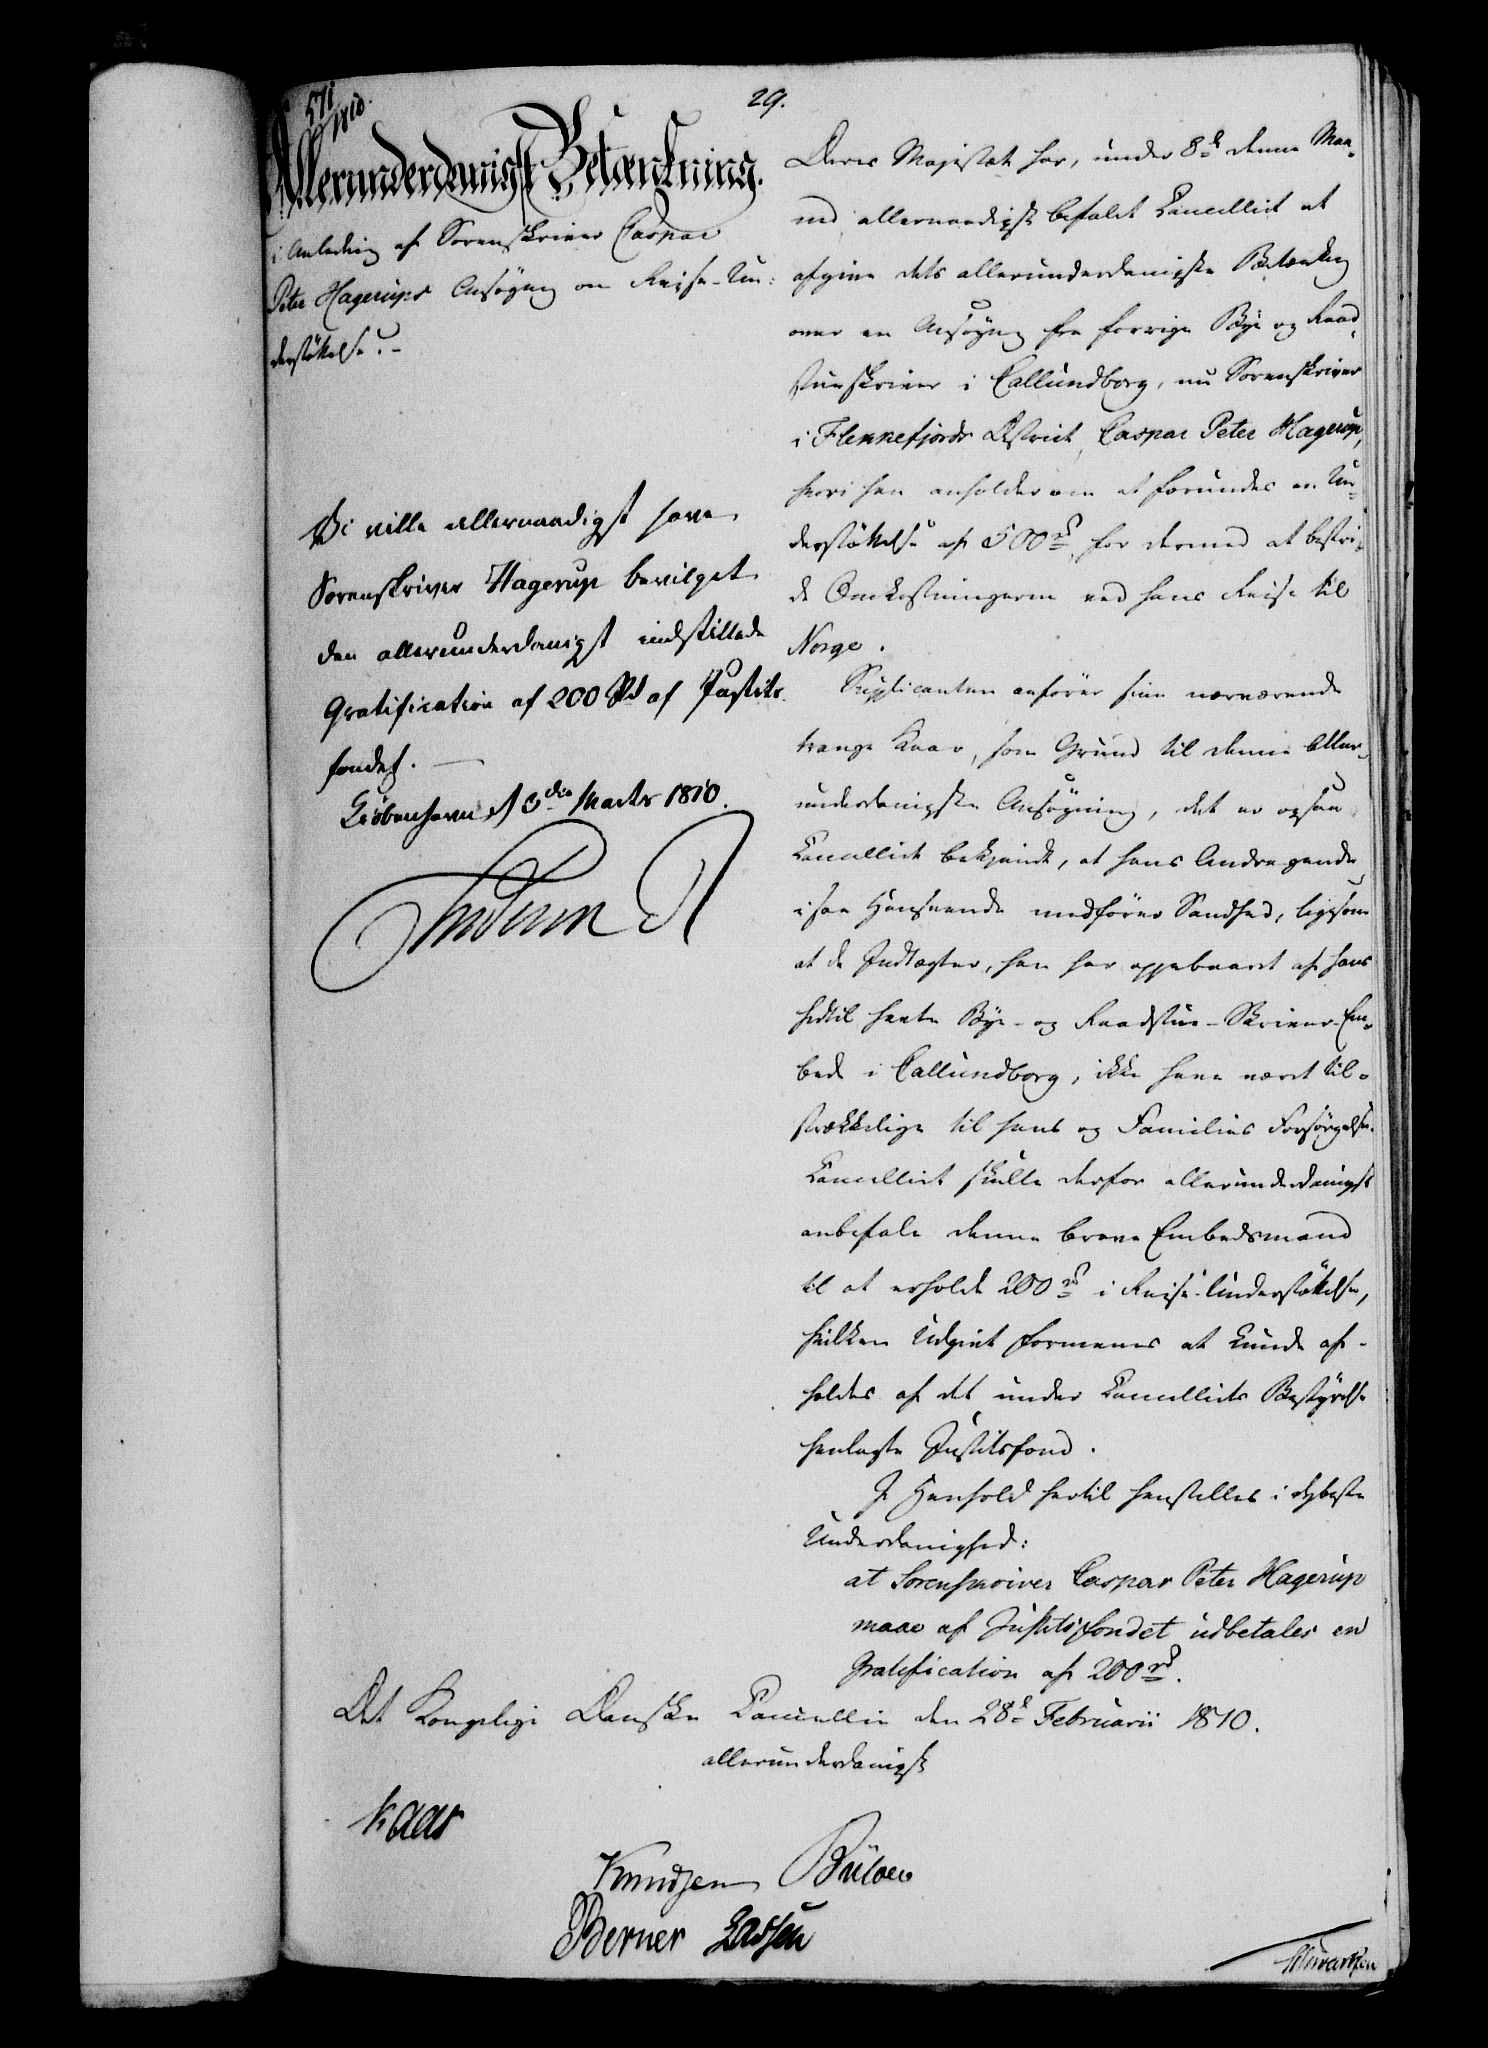 571
1810.
29.
Allerunderdanigst Betænkning.
i Anledning af Sorenskriver Caspar
Peter Hagerups Ansøgning om Reise-Un-
derstøttelse.
Vi ville allernaadigst have
Sorenskriver Hagerup bevilget
den allerunderdanigst indstillede
Gratification af 200 Rd af Justits-
fondet.
Kiöbenhavn d 3die Marts 1810.
Frederik R
Deres Majestæt har, under 8de denne Maa-
ned allernaadigst befalet Cancelliet at
afgive dets allerunderdanigste Betænkning
over en Ansøgning fra forrige Bye og Raad-
stueskriver i Callundborg, nu Sorenskriver
i Flekkefjords District, Caspar Peter Hagerup,
hvori han anholder om at forundes en Un-
derstøttelse af 500 rd for dermed at bestri-
de Omkostningerne ved hans Reise til
Norge.
Supplicanten anfører sine nærværende
trange Kaar, som Grund til denne aller-
underdanigste Ansøgning, det er ogsaa
Cancelliet bekjendt, at hans Andragende
i saa Henseende medfører Sandhed, ligesom
at de Indtægter, han har oppebaaret af hans
hidtil havte Bye- og Raadstue-Skriver-Em-
bede i Callundborg, ikke have været til-
strækkelige til hans og Families Forsørgelse.
Cancelliet skulle derfor allerunderdanigst
anbefale denne brave Embedsmand
til at erholde 200 rd i Reise-Understøttelse,
hvilken Udgivt formenes at kunde af-
holdes af det under Cancelliets Bestyrelse
henlagte Justitsfond.
I Henhold hertil henstilles i dybeste
Underdanighed:
at Sorenskriver Caspar Peter Hagerup
maae af Justitsfondet udbetales en
Gratification af 200 rd.
Det Kongelige Danske Cancellie den 28de Februarii 1810.
allerunderdanigst
Kaas
Knudsen Bülow
Berner Lassen